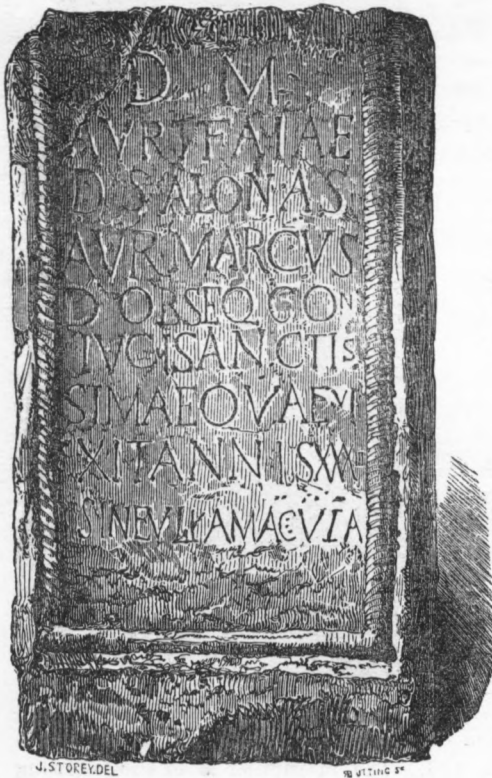 D M
AVR FAIAE
D SALONAS
AVR MARCVS
D OBSEQ CON
IVGI SANCTIS
SIMAE QVAE VI
XIT ANNIS XXX
SINE VLLA MACVLA
J. STOREY. DEL
UTTING Sc